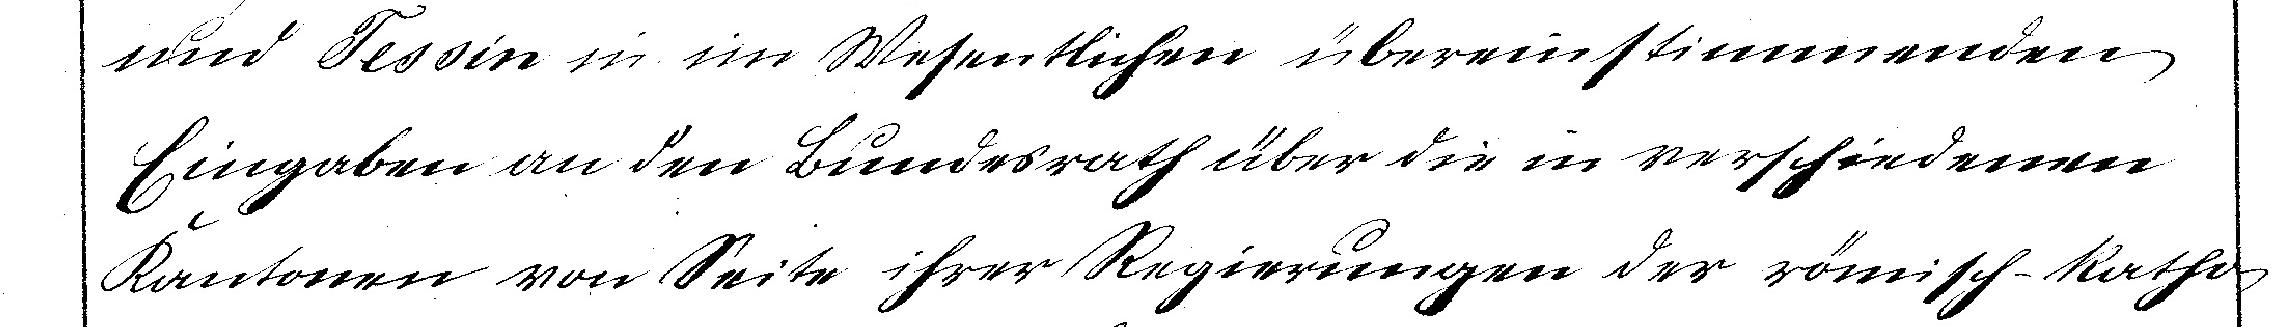 und Tessin in im Wesentlichen übereinstimmenden
Eingaben an den Bundesrath über die in verschiedenen
Kantonen von Seite ihrer Regierungen der römisch-katho